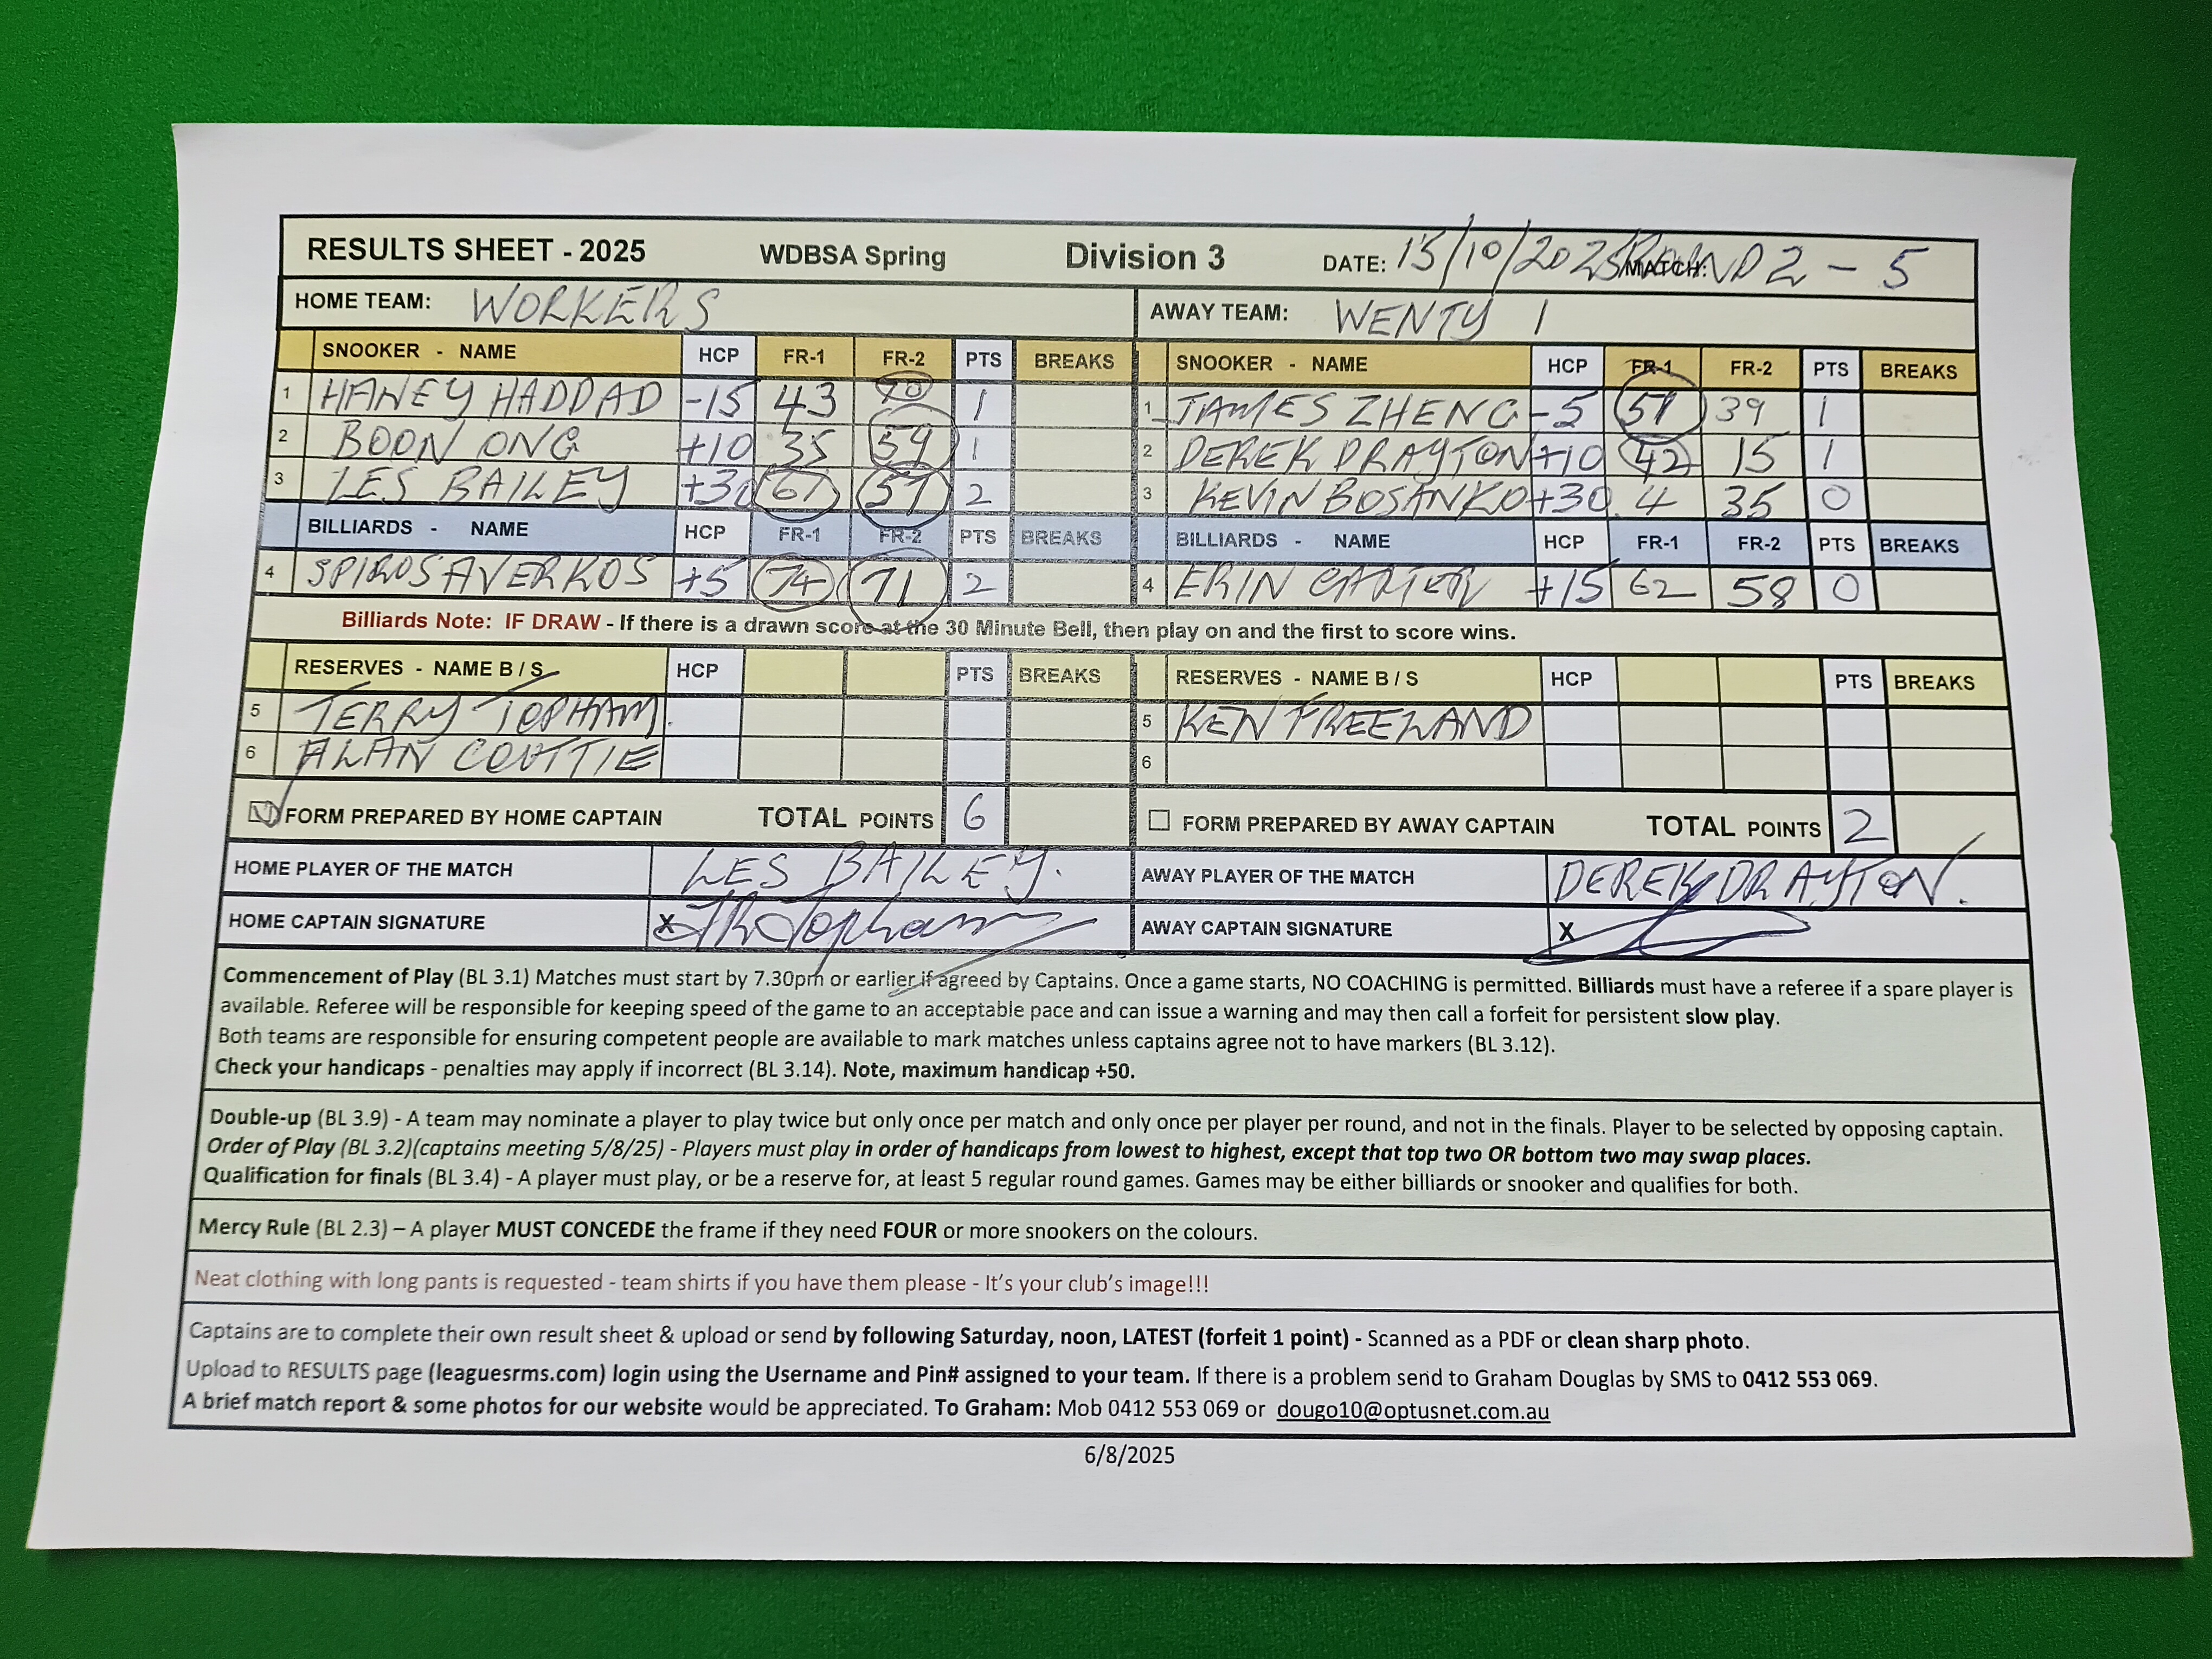 RESULTS SHEET - 2025 WDBSA Spring Division 3 DATE: 15/10/2025 MATCH: ROUND 2 - 5
HOME TEAM: WORKERS AWAY TEAM: WENTY 1
SNOOKER - NAME HCP FR-1 FR-2 PTS BREAKS 1 SNOOKER - NAME HCP FR-1 FR-2 PTS BREAKS
1 HANEY HADDAD -15 43 70 1 1 JAMES ZHENG -5 57 39 1
2 BOON ONG +10 35 59 1 2 DEREK DRAYTON +10 42 15 1
3 LES BAILEY +30 67 57 2 3 KEVIN BOSANKO +30 4 35 0
BILLIARDS - NAME HCP FR-1 FR-2 PTS BREAKS BILLIARDS - NAME HCP FR-1 FR-2 PTS BREAKS
4 SPIROS AVERKOS +5 74 71 2 4 ERIN CARTER +15 62 58 0
Billiards Note: IF DRAW - If there is a drawn score at the 30 Minute Bell, then play on and the first to score wins.
RESERVES - NAME B / S HCP PTS BREAKS RESERVES - NAME B / S HCP PTS BREAKS
5 TERRY TOPHAM. 5 KEN FREELAND
6 ALAN COUTTIE 6
FORM PREPARED BY HOME CAPTAIN TOTAL POINTS 6 FORM PREPARED BY AWAY CAPTAIN TOTAL POINTS 2
HOME PLAYER OF THE MATCH LES BAILEY. AWAY PLAYER OF THE MATCH DEREK DRAYTON.
HOME CAPTAIN SIGNATURE X AWAY CAPTAIN SIGNATURE X
Commencement of Play (BL 3.1) Matches must start by 7.30pm or earlier if agreed by Captains. Once a game starts, NO COACHING is permitted. Billiards must have a referee if a spare player is
available. Referee will be responsible for keeping speed of the game to an acceptable pace and can issue a warning and may then call a forfeit for persistent slow play.
Both teams are responsible for ensuring competent people are available to mark matches unless captains agree not to have markers (BL 3.12).
Check your handicaps - penalties may apply if incorrect (BL 3.14). Note, maximum handicap +50.
Double-up (BL 3.9) - A team may nominate a player to play twice but only once per match and only once per player per round, and not in the finals. Player to be selected by opposing captain.
Order of Play (BL 3.2)(captains meeting 5/8/25) - Players must play in order of handicaps from lowest to highest, except that top two OR bottom two may swap places.
Qualification for finals (BL 3.4) - A player must play, or be a reserve for, at least 5 regular round games. Games may be either billiards or snooker and qualifies for both.
Mercy Rule (BL 2.3) – A player MUST CONCEDE the frame if they need FOUR or more snookers on the colours.
Neat clothing with long pants is requested - team shirts if you have them please - It's your club's image!!!
Captains are to complete their own result sheet & upload or send by following Saturday, noon, LATEST (forfeit 1 point) - Scanned as a PDF or clean sharp photo.
Upload to RESULTS page (leaguesrms.com) login using the Username and Pin# assigned to your team. If there is a problem send to Graham Douglas by SMS to 0412 553 069.
A brief match report & some photos for our website would be appreciated. To Graham: Mob 0412 553 069 or dougo10@optusnet.com.au
6/8/2025